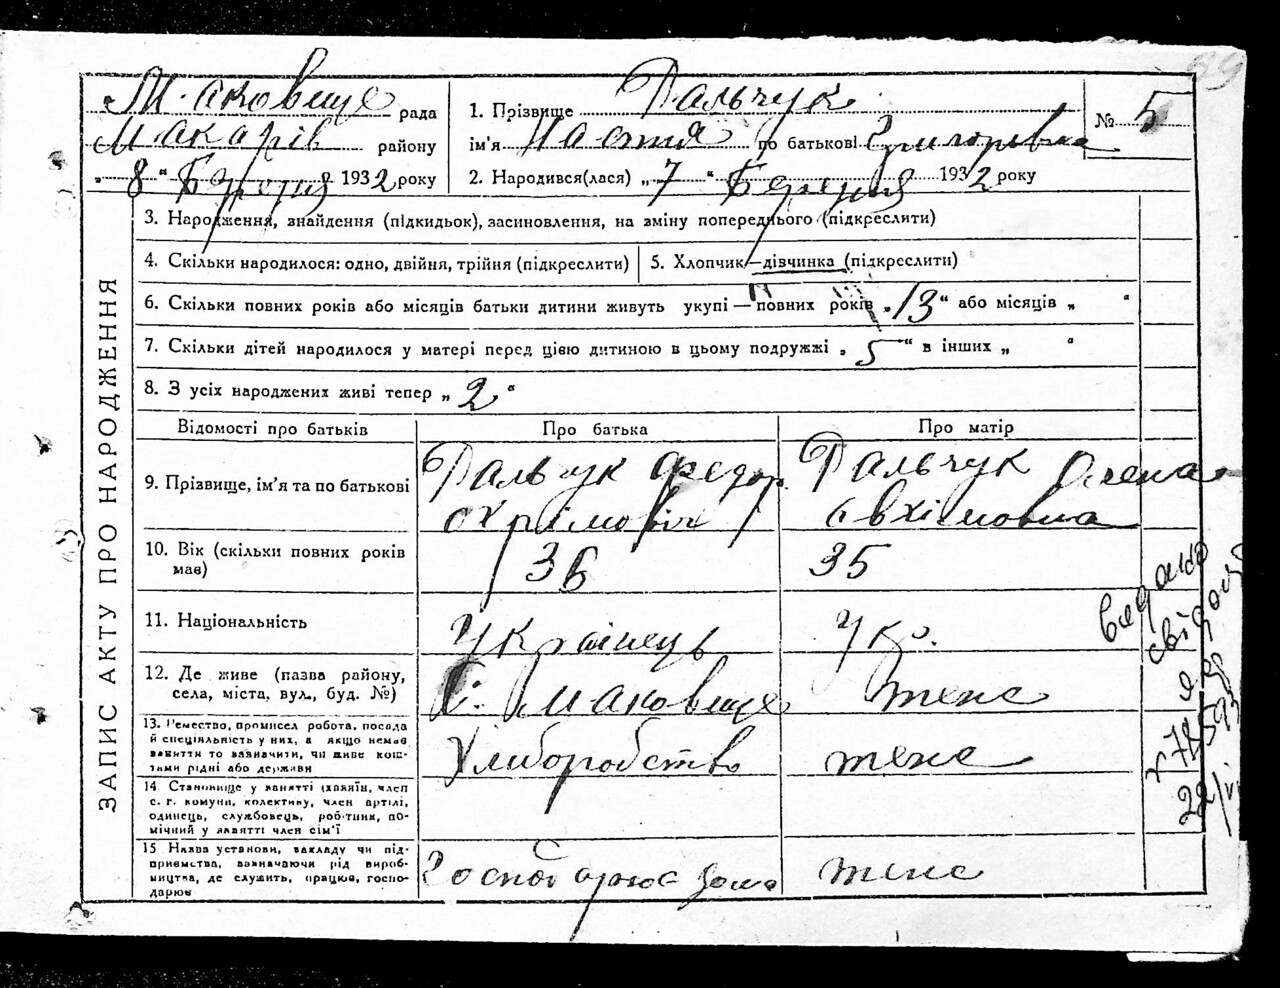 Маковище рада
Макарів району
„8" Березня 1932 року
1. Прізвище Пальчук
ім'я Настя по батькові Григорівна
2. Народився(лася) „7" Березня 1932 року
№ 5
ЗАПИС АКТУ ПРО НАРОДЖЕННЯ
3. Народження, знайдення (підкидьок), засиновлення, на зміну попереднього (підкреслити)
4. Скільки народилося: одно, двійня, трійня (підкреслити)
5. Хлопчик—дівчинка (підкреслити)
6. Скільки повних років або місяців батьки дитини живуть укупі — повних років „13" або місяців „ "
7. Скільки дітей народилося у матері перед цією дитиною в цьому подружжі „5" в інших „ "
8. З усіх народжених живі тепер „2"
Відомості про батьків Про батька Про матір
9. Прізвище, ім'я та по батькові
Пальчук Федор
Охрімовіч
Пальчук Олена
Євхімовна
10. Вік (скільки повних років
мав)
36
35
11. Національність
Українець
Укр.
12. Де живе (назва району,
села, міста, вул., буд. №)
С. Маковище
теже
13. Ремество, промисел робота, посада
й спеціяльність у них, а якщо немає
заняття то зазначити, чи живе кош-
тами рідні або держави
Хліборобство
теже
14 Становище у занятті (хазяїн, член
с. г. комуни, колективу, член артілі,
одинець, службовець, робітник, по-
мічний у занятті член сім'ї
15 Назва установи, закладу чи під-
приємства, зазначаючи рід вироб-
ництва, де служить, працює, госпо-
дарює
Господарює дома
теже